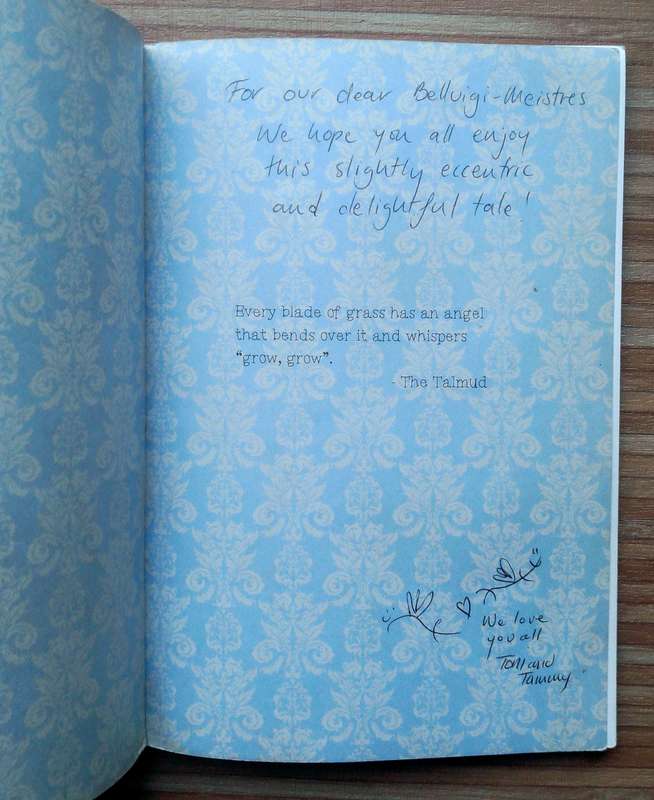 For our dear Belluigi-Meistres
We hope you all enjoy
this slightly eccentric
and delightful tale!
Every blade of grass has an angel
that bends over it and whispers
“grow, grow”.
- The Talmud
We love
you all
Tom and
Tammy